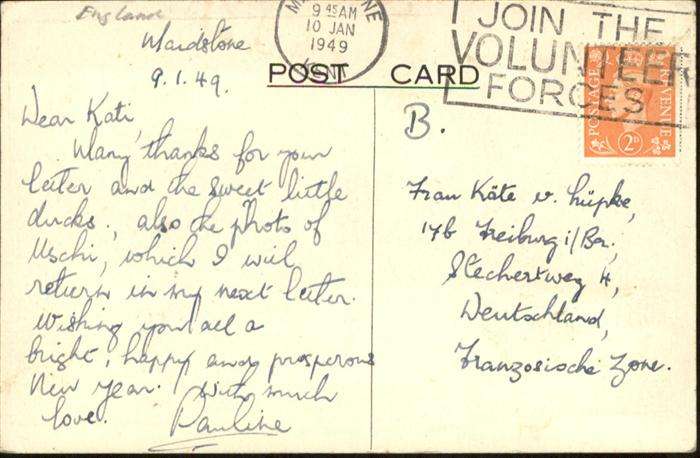 England
Maidstone
9.1.49.
Dear Kati,
Many thanks for your
letter and the sweet little
ducks, also the photo of
Uschi, which I will
return in my next letter.
Wishing you all a
bright, happy and prosperous
New Year. With much
love. Pauline
9 45 AM
10 JAN
1949
KENT
JOIN THE
VOLUNTEER
FORCES
POST CARD
POSTAGE REVENUE
2D
B.
Frau Käte v. Lüpke,
17b Freiburg i/Br.,
Stechertweg 4,
Deutschland,
Französische Zone.